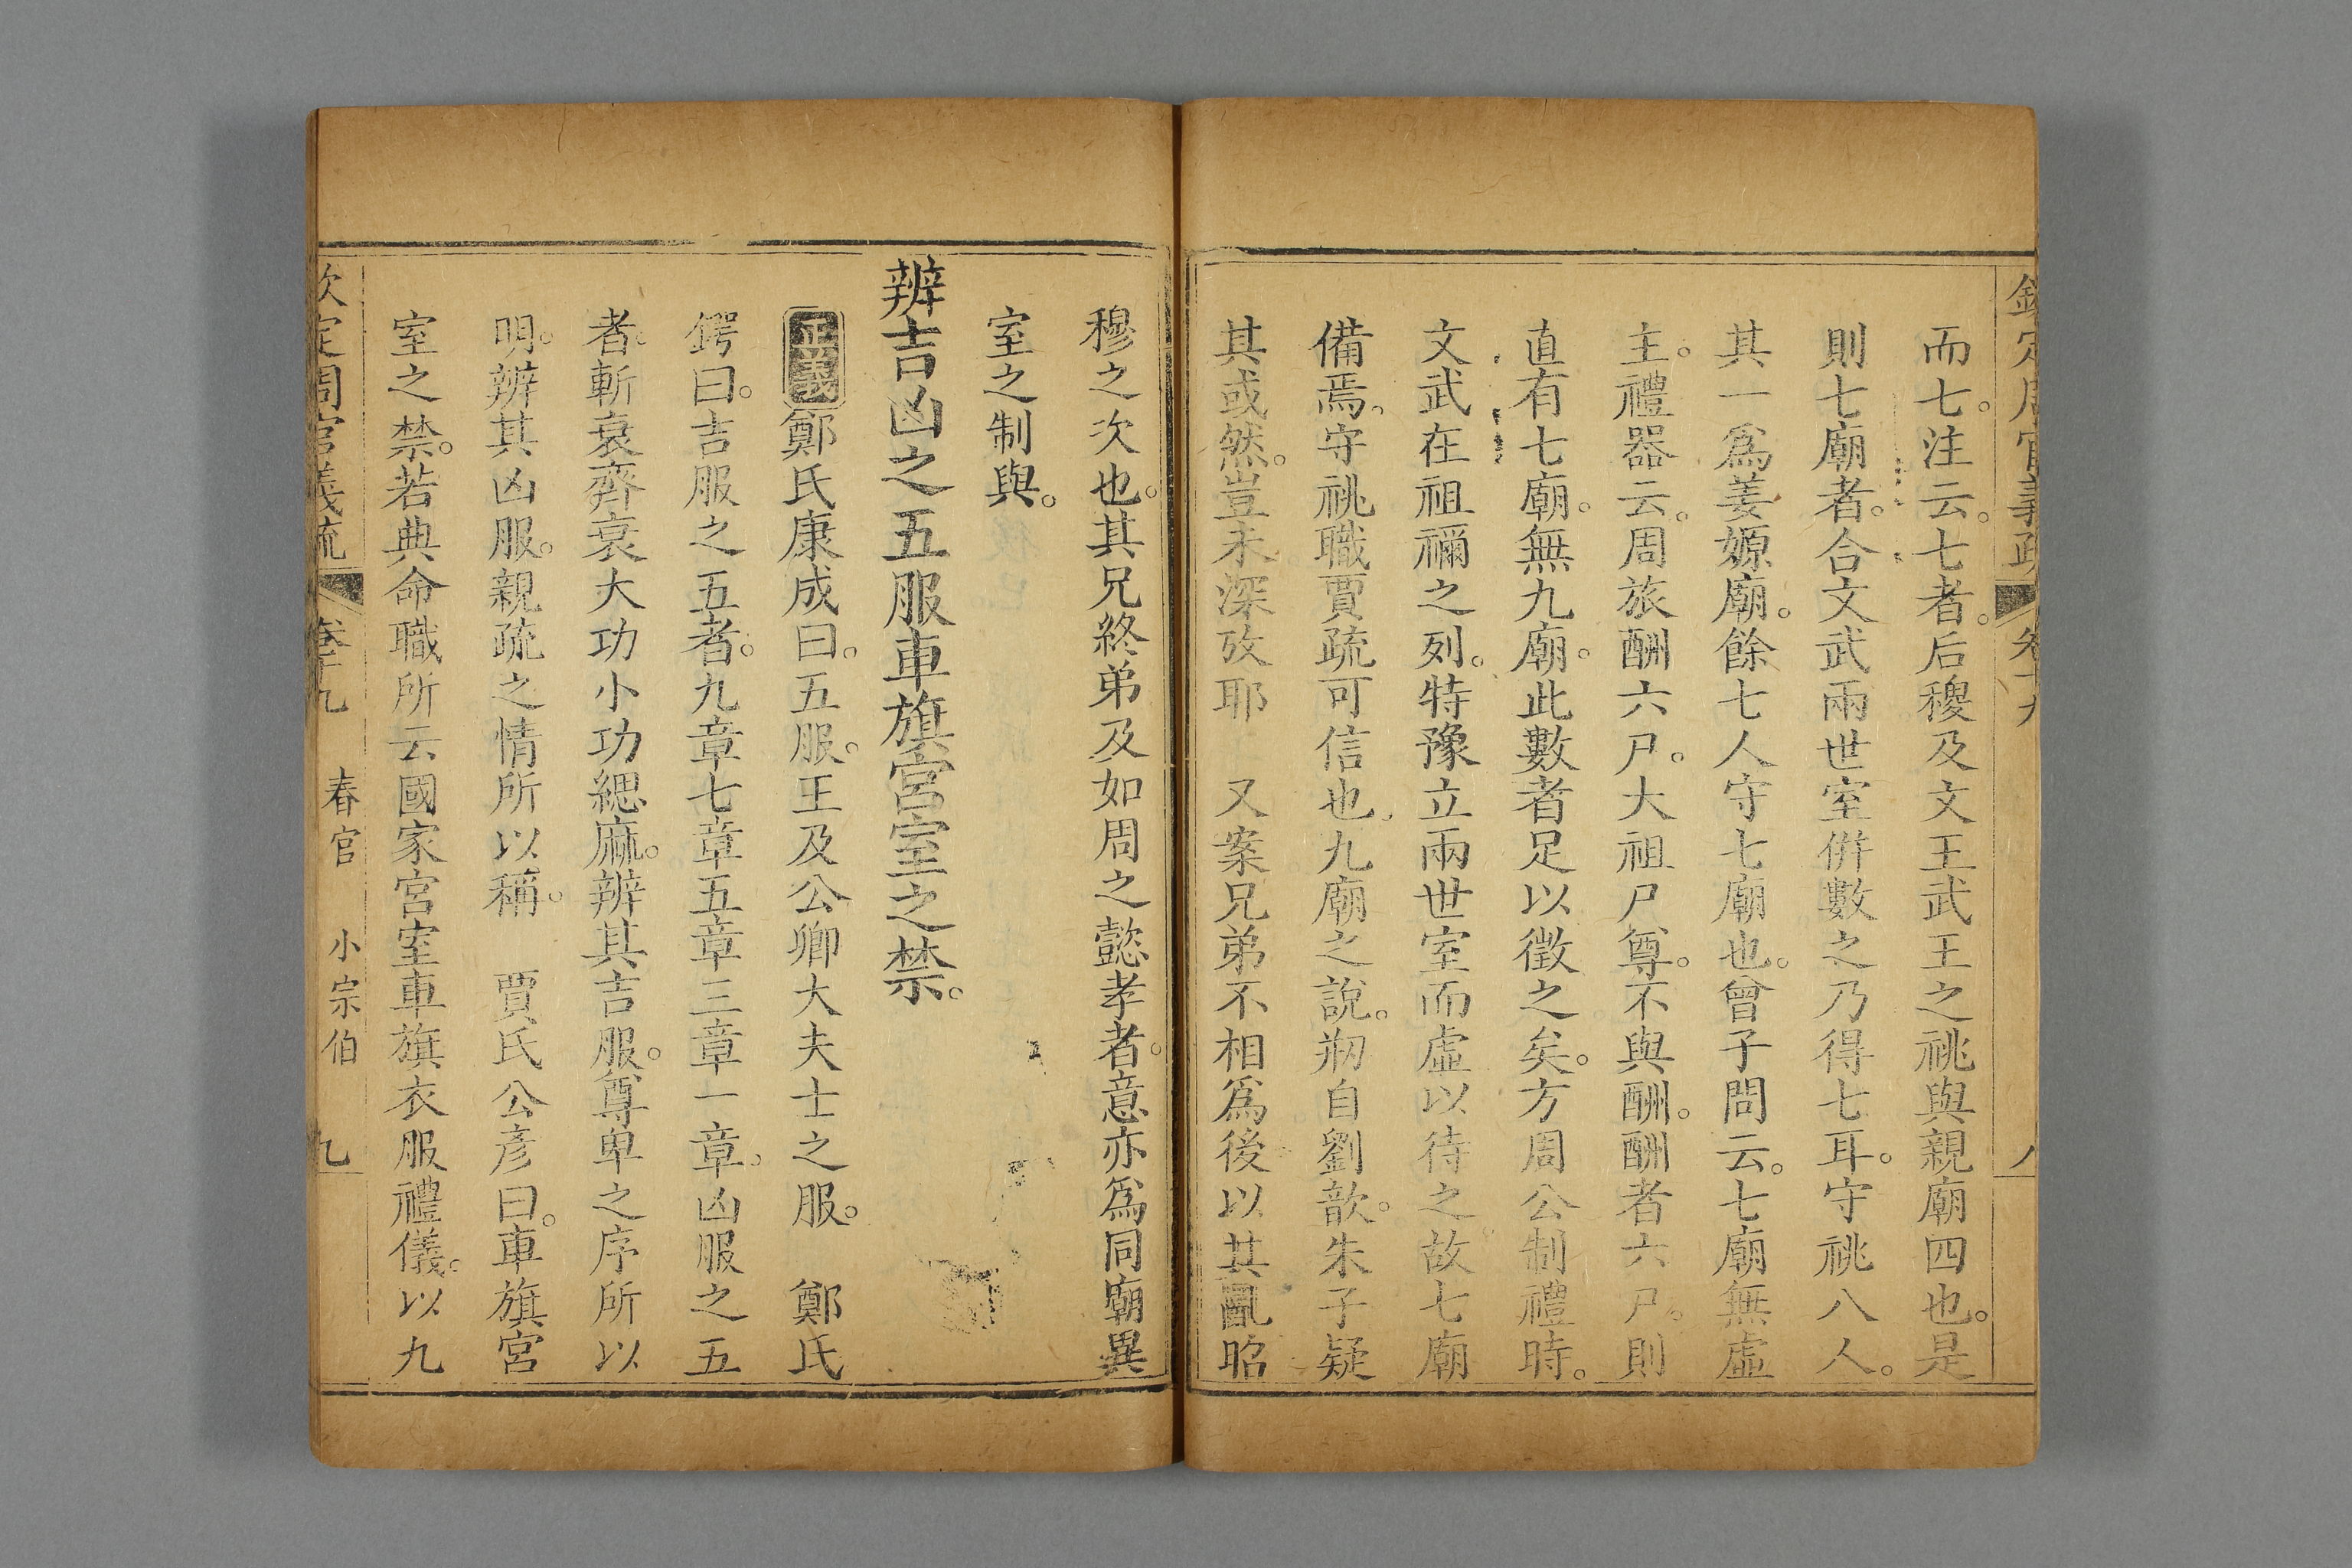 欽定周官義疏 卷十九 八
而七。注云。七者。后稷及文王武王之祧與親廟四也。是
則七廟者。合文武兩世室倂數之乃得七耳。守祧八人。
其一爲姜嫄廟。餘七人守七廟也。曾子問云。七廟無虛
主。禮器云。周旅酬六尸。大祖尸尊。不與酬。酬者六尸。則
直有七廟。無九廟。此數者足以徵之矣。方周公制禮時。
文武在祖禰之列。特豫立兩世室而虛以待之故七廟
備焉。守祧職賈疏可信也。九廟之說。剏自劉歆。朱子疑
其或然。豈未深攷耶 又案兄弟不相爲後以其亂昭
穆之次也。其兄終弟及如周之懿孝者。意亦爲同廟異
室之制與。
辨吉凶之五服車旗宮室之禁。
正義鄭氏康成曰。五服。王及公卿大夫士之服。 鄭氏
鍔曰。吉服之五者。九章七章五章三章一章。凶服之五
者。斬衰齊衰大功小功緦麻。辨其吉服。尊卑之序所以
明。辨其凶服。親疏之情所以稱。 賈氏公彥曰。車旗宮
室之禁。若典命職所云國家宮室車旗衣服禮儀。以九
欽定周官義疏 卷十九 春官 小宗伯 九